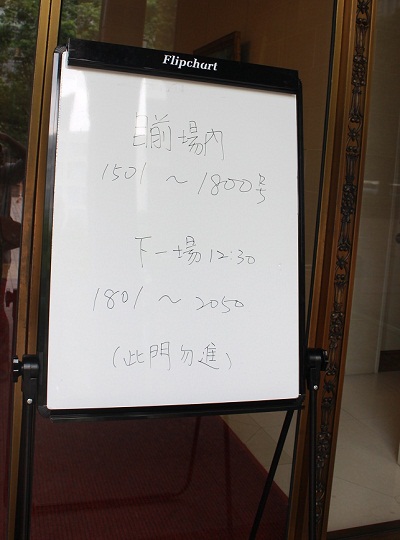 Flipchart
目前場內
1501 ~ 1800号
下一場 12:30
1801 ~ 2050
(此門勿進)